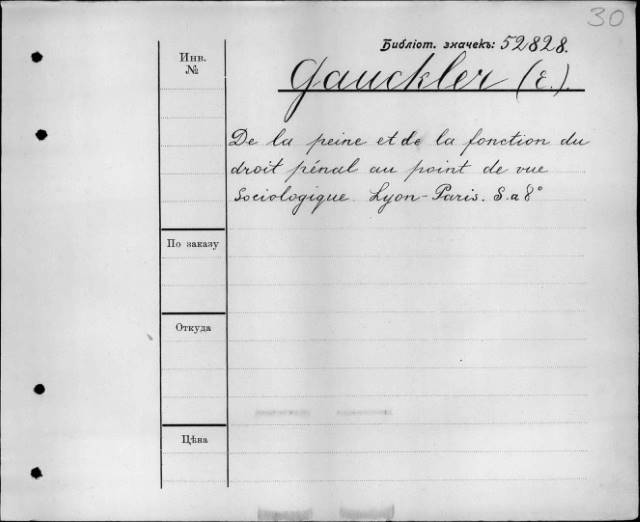 30
Библіот. значекъ: 52828.
Инв.
№
Gauckler (E.).
De la peine et de la fonction du
droit pénal au point de vue
Sociologique. Lyon-Paris. S. a 8°
По заказу
Откуда
Цѣна